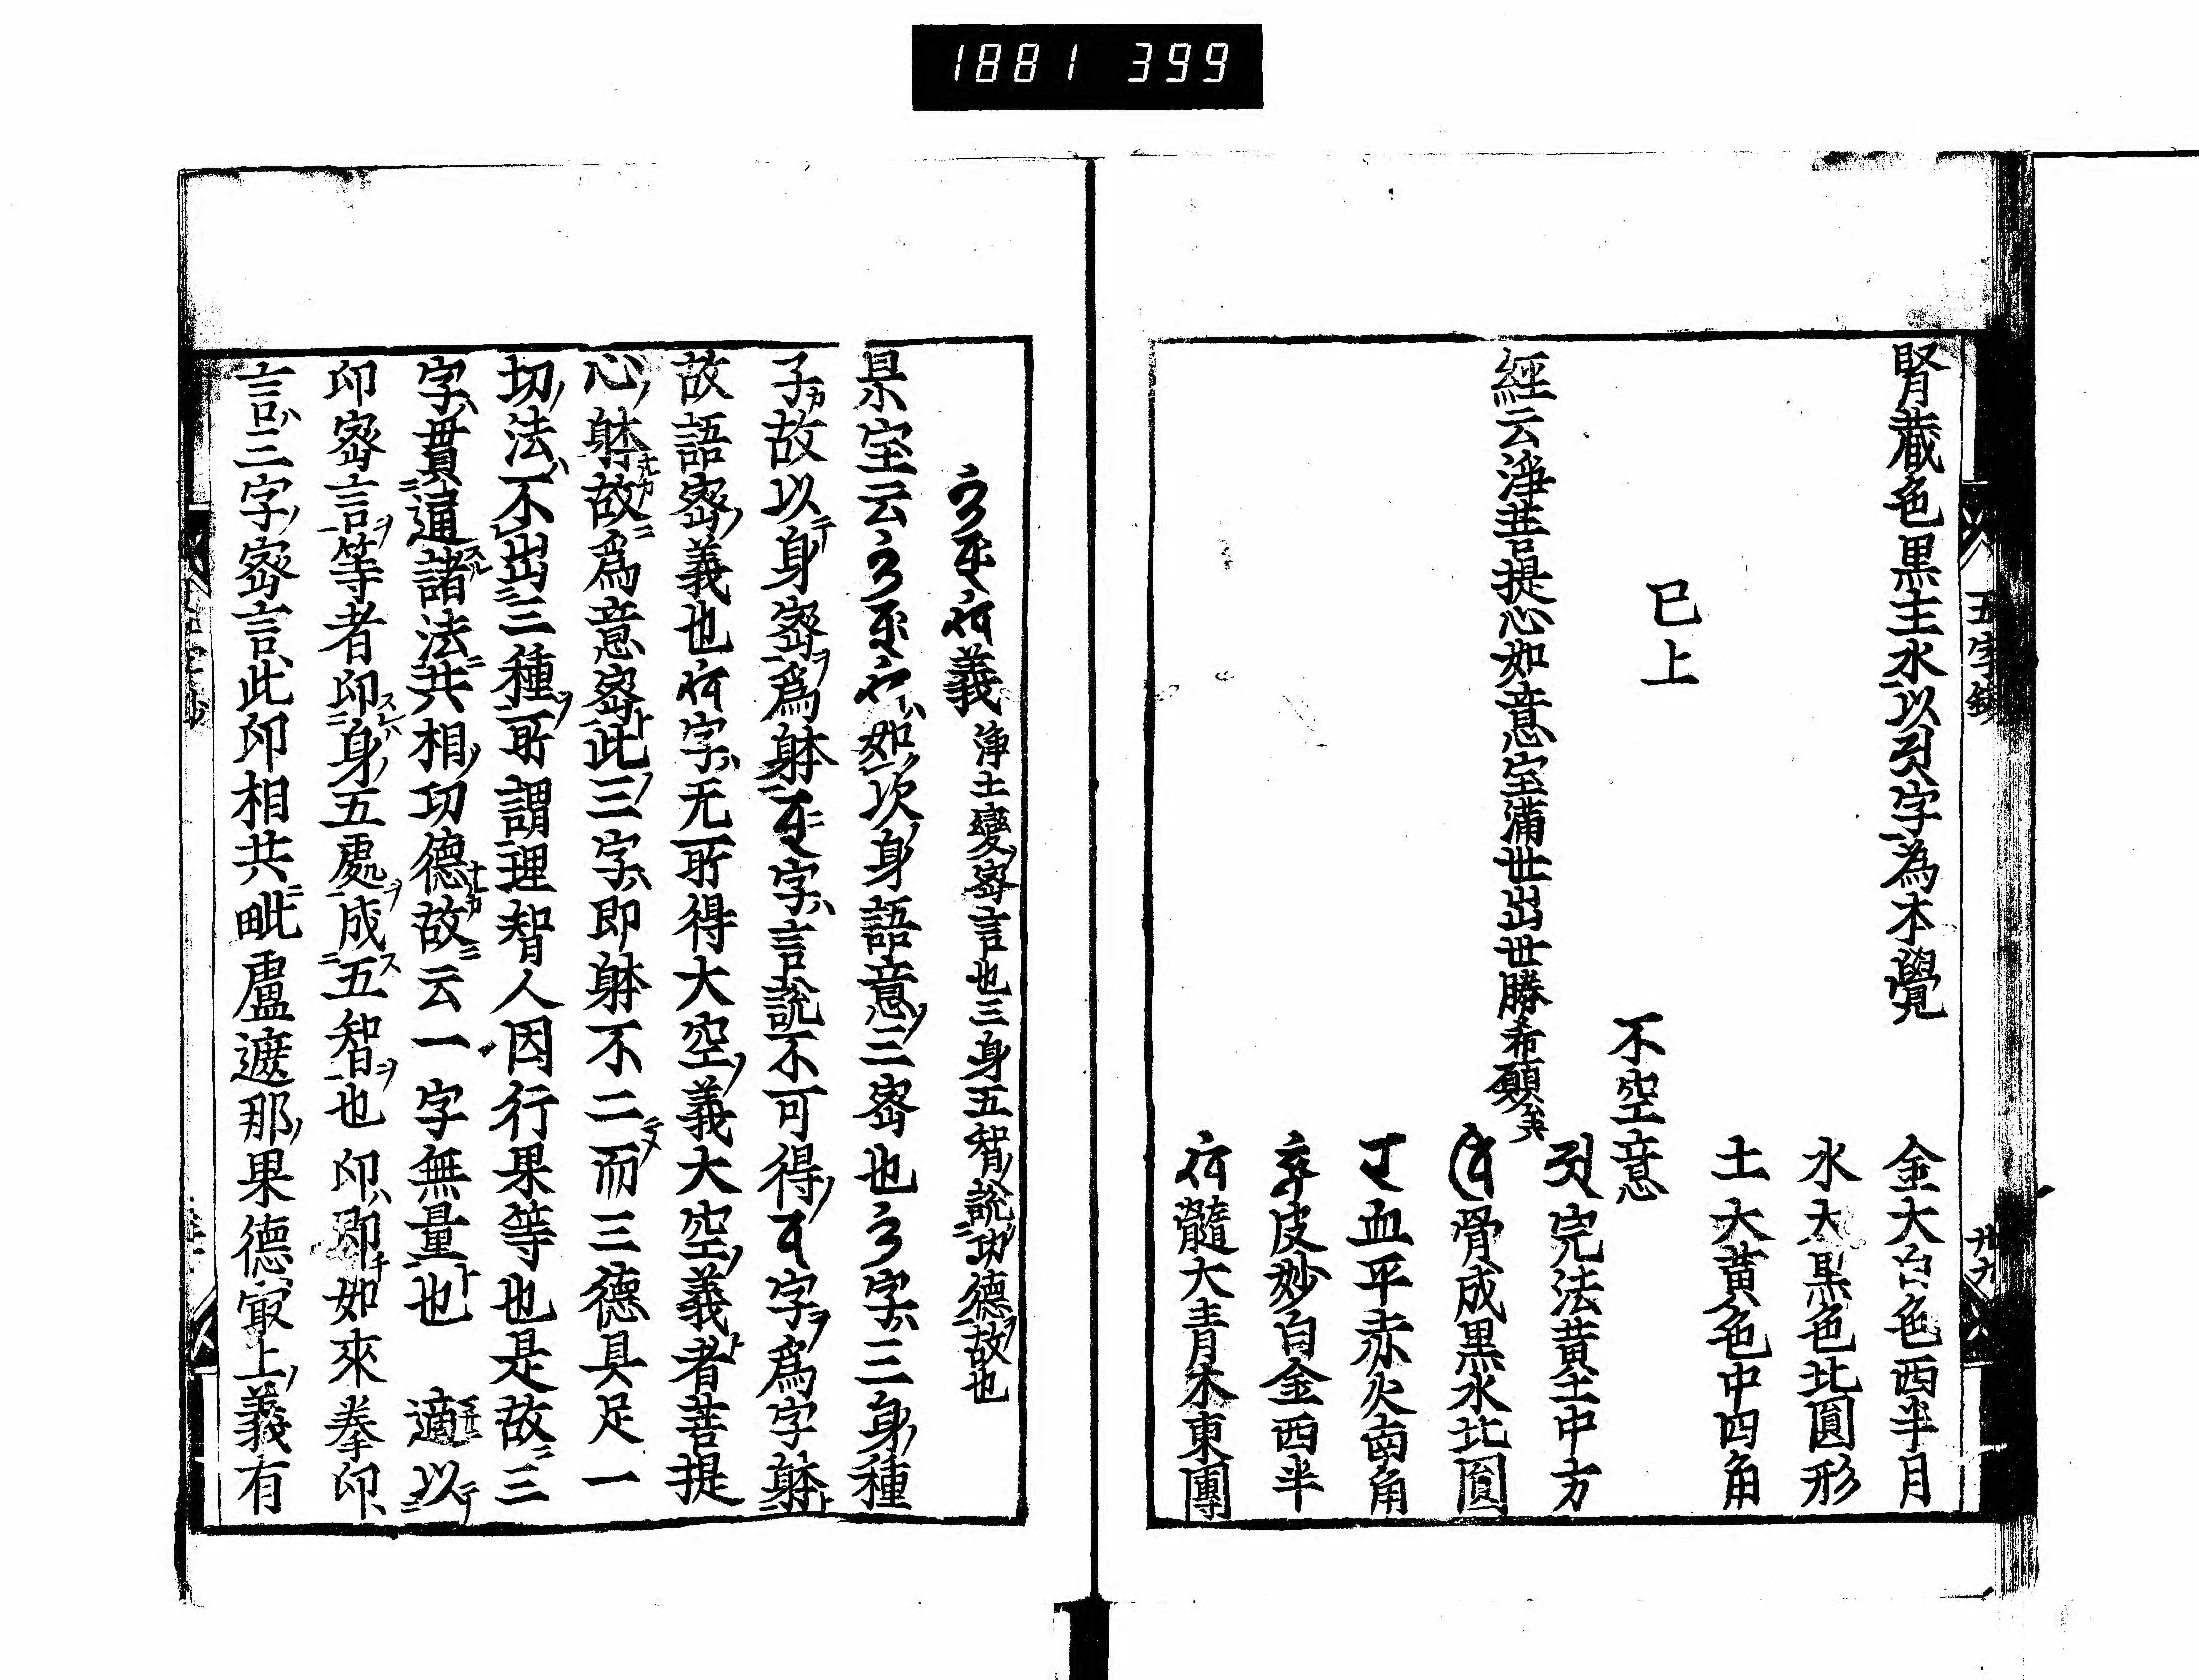 1881 399
五字鈔
廿九
腎藏色黒主水以字為本覺
金大白色西半月
水大黒色北圓形
土大黄色中四角
已上
不空意
經云淨菩提心如意宝滿世出世勝希願矣
完法黄土中方
骨成黒水北圓
血平赤火南角
皮妙白金西半
髓大青木東團
義 淨土變密言也三身五智説功德故也
杲宝云如次身語意三密也字三身種
子故以身密爲躰字言説不可得字爲字躰
故語密義也字无所得大空義大空義者菩提
心躰故爲意密此三字即躰不二而三德具足一
切法不出三種所謂理智人因行果等也是故三
字貫通諸法共相功德故云一字無量也 適以
印密言等者印身五處成五智也 印即如來拳印
言三字密言此印相共毗盧遮那果德冣上義有